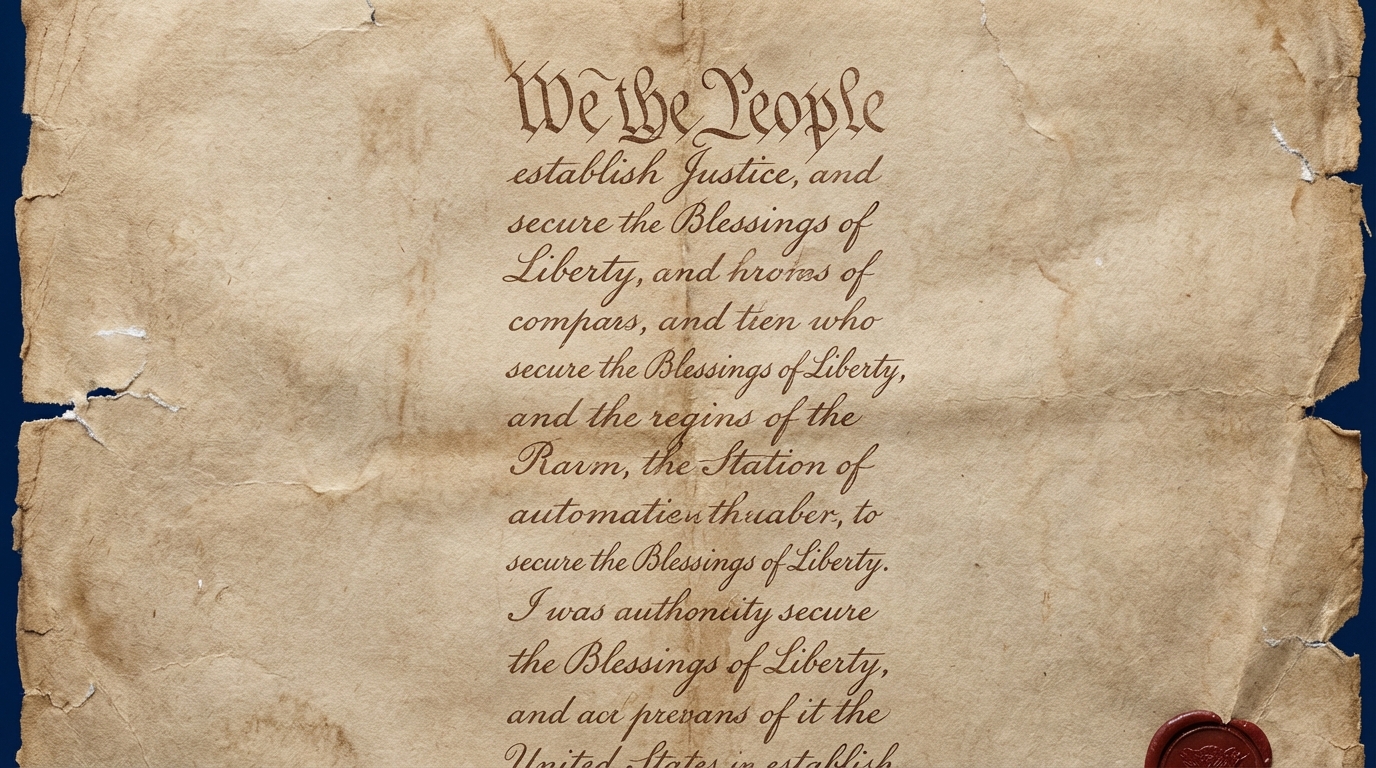 We the People
establish Justice, and
secure the Blessings of
Liberty, and hroms of
compars, and tien who
secure the Blessings of Liberty,
and the regins of the
Rarm, the Station of
automatien thuaber, to
secure the Blessings of Liberty.
I was authoncity secure
the Blessings of Liberty,
and acr prevans of it the
United States in establish